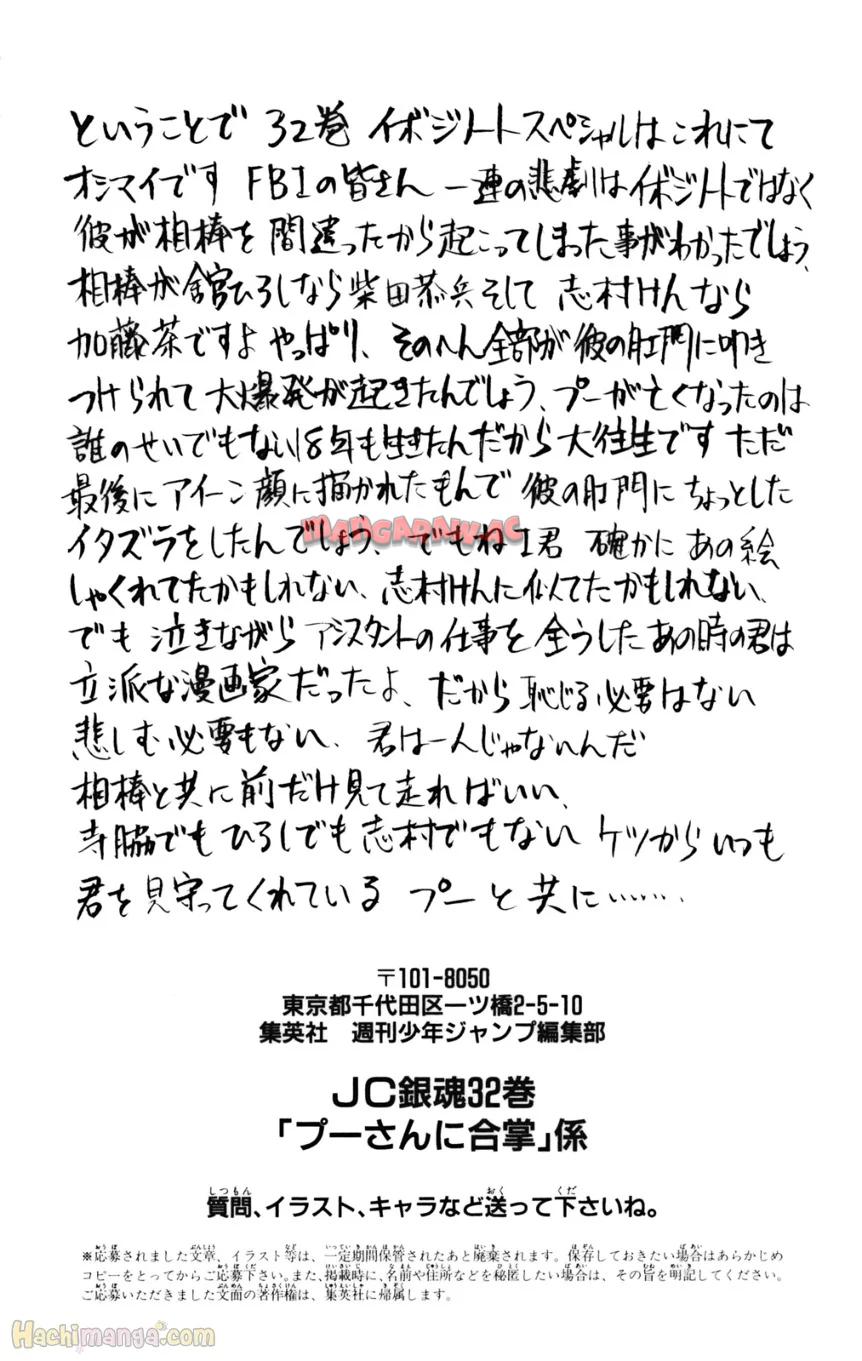 ということで 32巻 イボジノートスペシャルはこれにて
オシマイです FBIの皆さん 一連の悲劇はイボジノートではなく
彼が相棒を間違ったから起こってしまった事がわかったでしょう、
相棒が舘ひろしなら柴田恭兵そして 志村けんなら
加藤茶ですよ やっぱり、そのへん全部が彼の肛門に叩き
つけられて大爆発が起きたんでしょう、プーが亡くなったのは
誰のせいでもない18年も生きたんだから大往生です ただ
最後にアイーン顔に描かれたもんで 彼の肛門にちょっとした
イタズラをしたんでしょう、でもねI君 確かにあの絵
しゃくれてたかもしれない、志村けんに似てたかもしれない、
でも 泣きながら アシスタントの仕事を全うしたあの時の君は
立派な漫画家だったよ、だから恥じる必要はない
悲しむ必要もない、君は一人じゃないんだ
相棒と共に前だけ見て走ればいい、
寺脇でもひろしでも志村でもない ケツからいつも
君を見守ってくれている プーと共に……
MANGARAWAC
〒101-8050
東京都千代田区一ツ橋2-5-10
集英社 週刊少年ジャンプ編集部
JC銀魂32巻
「プーさんに合掌」係
質問、イラスト、キャラなど送って下さいね。
※応募されました文章、イラスト等は、一定期間保管されたあと廃棄されます。保存しておきたい場合はあらかじめ
コピーをとってからご応募下さい。また、掲載時に、名前や住所などを秘匿したい場合は、その旨を明記してください。
ご応募いただきました文面の著作権は、集英社に帰属します。
Hachimanga.com